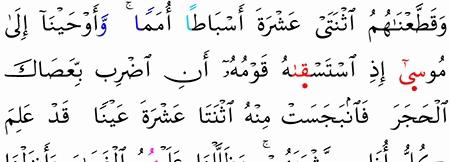 وَقَطَّعْنَٰهُمُ ٱثْنَتَىْ عَشْرَةَ أَسْبَاطًا أُمَمًا ۚ وَأَوْحَيْنَآ إِلَىٰ
مُوسَىٰٓ إِذِ ٱسْتَسْقَىٰهُ قَوْمُهُۥٓ أَنِ ٱضْرِب بِّعَصَاكَ
ٱلْحَجَرَ فَٱنۢبَجَسَتْ مِنْهُ ٱثْنَتَا عَشْرَةَ عَيْنًا قَدْ عَلِمَ